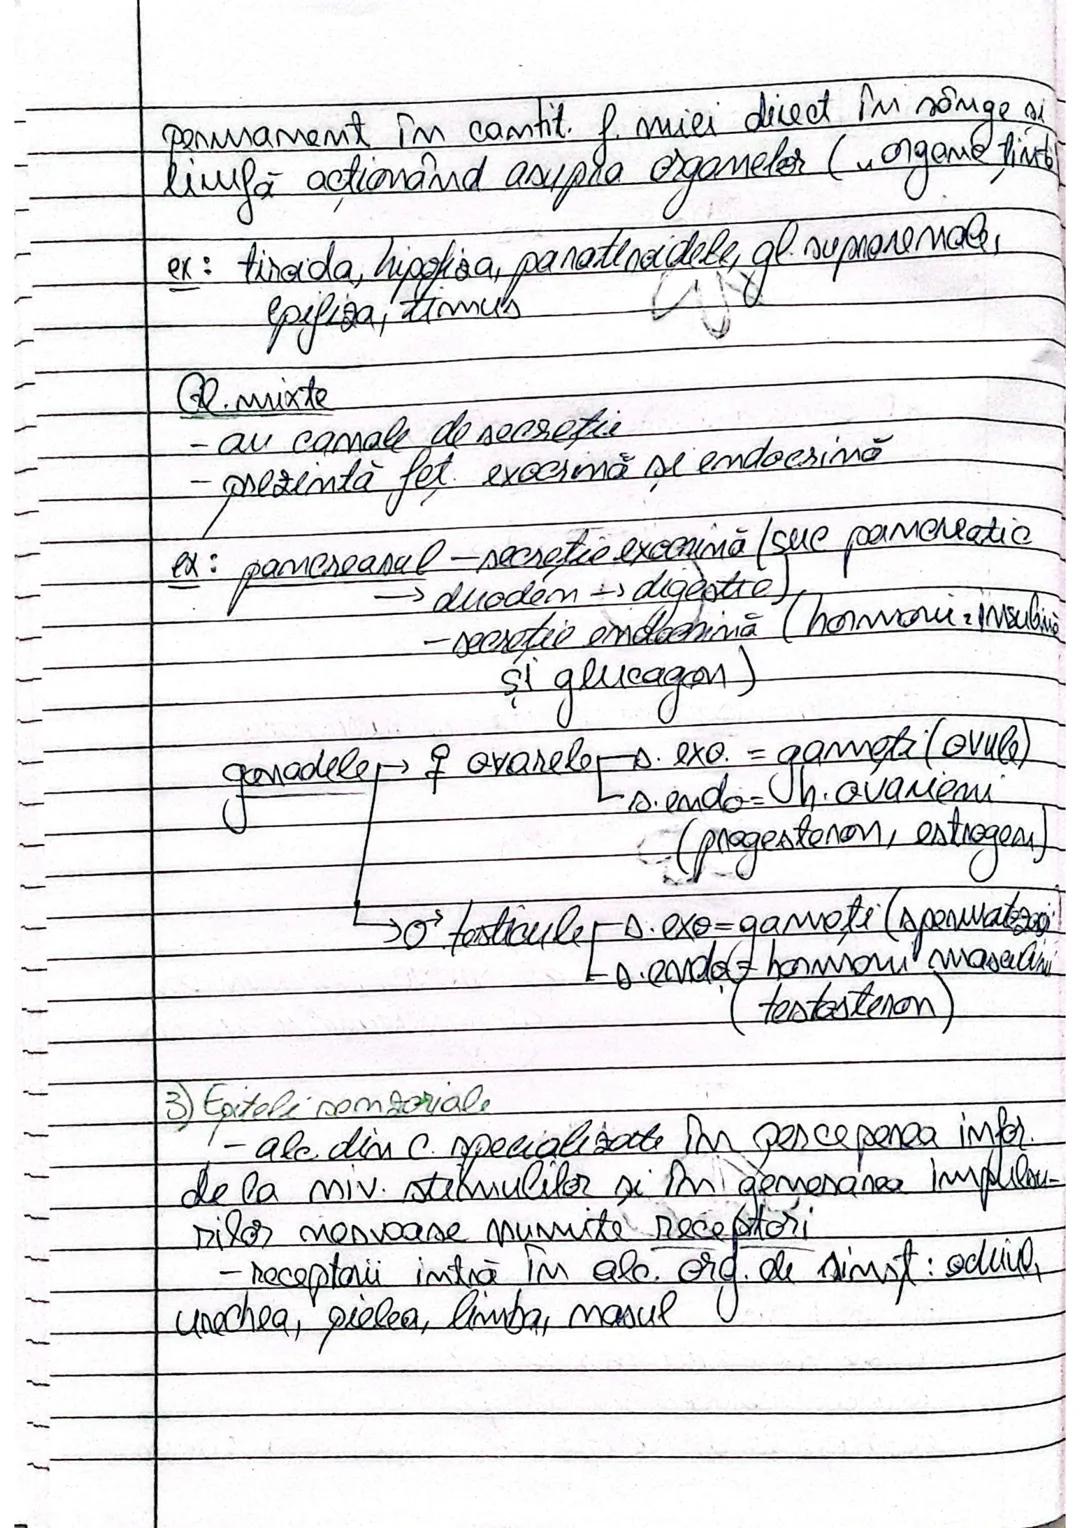 permanent în cantit. f. mici direct în sânge și
limfă acționând asupra organelor („organe țintă
ex: tiroida, hipofiza, paratiroidele, gl. suprarenale,
epifiza, timus
Gl. mixte
- au canale de secreție
- prezintă fct. exocrină și endocrină
ex: pancreasul – secreție exocrină (suc pancreatic
→ duoden → digestie)
- secreție endocrină (hormoni: insulină
și glucagon)
gonadele → ♀ ovarele s. exo. = gameți (ovule)
s. endo = h. ovarieni
(progesteron, estrogen)
→ ♂ testicule s. exo = gameți (spermatozoi
s. endo = hormoni masculini
(testosteron)
3) Epitelii senzoriale
- alc. din c. specializate în perceperea infor.
de la niv. stimulilor și în generarea impulsu-
rilor nervoase numite receptori
- receptorii intră în alc. org. de simț: ochiul,
urechea, pielea, limba, nasul